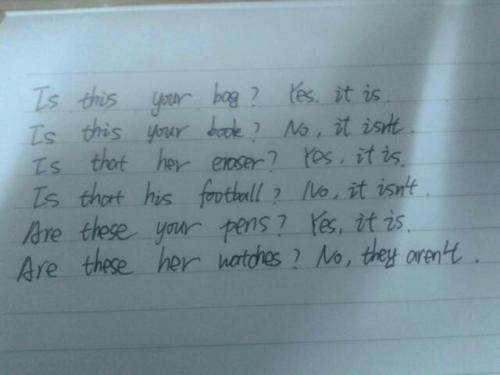 Is this your bag? Yes. it is.
Is this your book? No, it isn't.
Is that her eraser? Yes, it is.
Is that his football? No, it isn't.
Are these your pens? Yes, it is.
Are these her watches? No, they aren't.